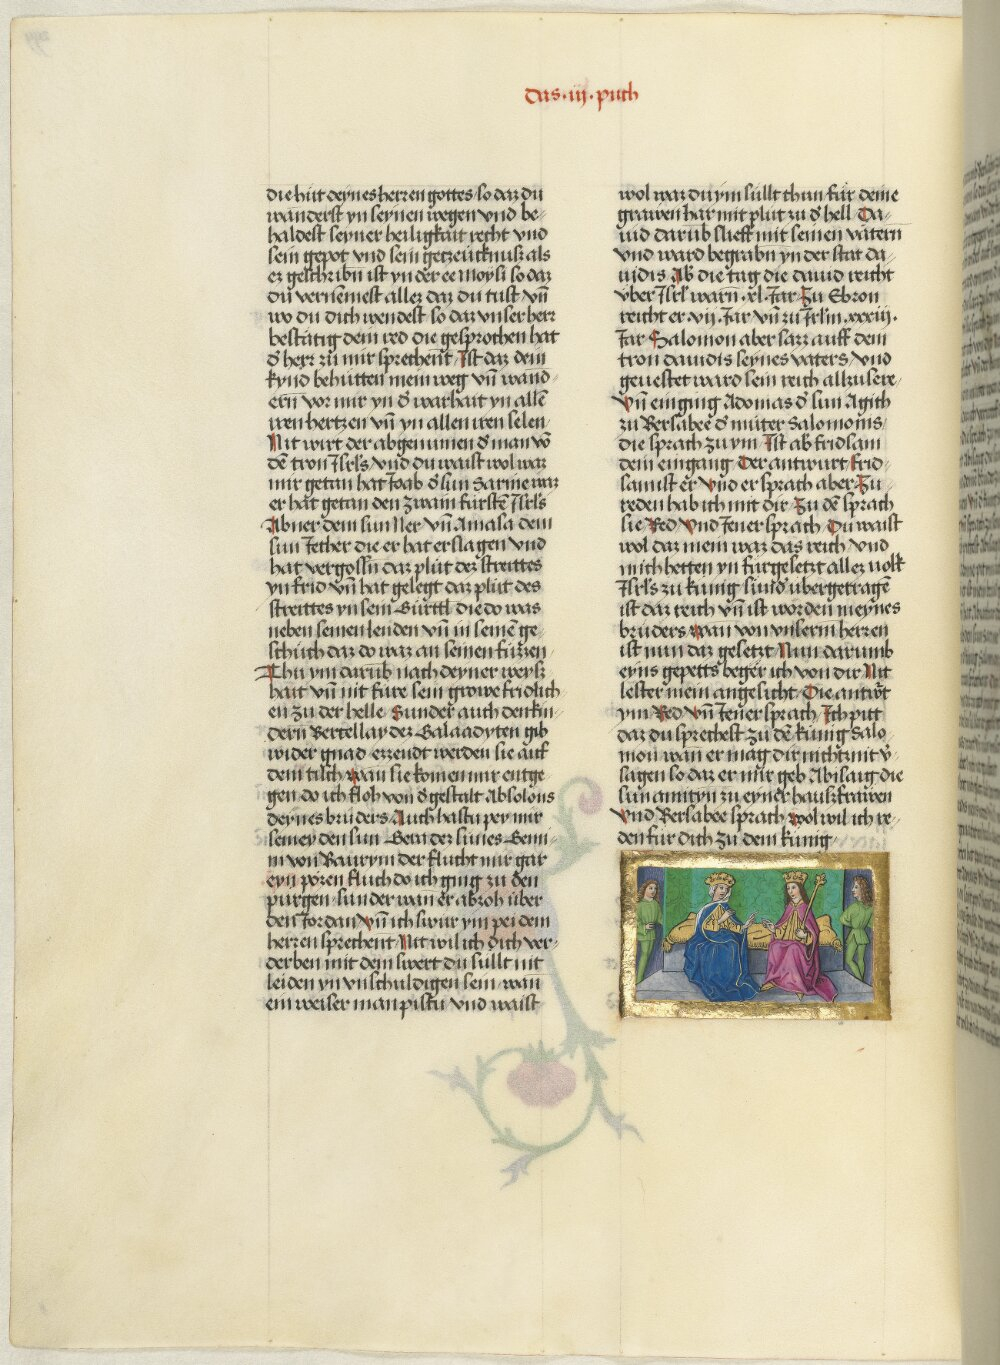 das · iij · puch
die hüt deynes herren gottes / so daz du
wanderst yn seynen wegen vnd be-
haldest seyner heiligkait recht vnd
sein gepot vnd sein getzeücknuß als
ez geschribn ist yn der ee Moysi so daz
du vernemest allez daz du tust vn̄
wo du dich wendest so daz vnser herr
bestätig dein red die gesprochen hat
d̄ herr zu mir sprechent Ist daz dein
kynd behütten mein weg vn̄ wand-
ern vor mir yn d̄ warhait yn allē
iren hertzen vn̄ yn allen iren selen /
Nit wirt der abgenumen d̄ man vō
dē tron Isrl's / vnd du waist wol waz
mir getan hat Joab d̄ sun Saruie waz
er hat getan den zwain fürstē Isrl's
Abner dem sun Ner vn̄ Amasa dem
sun Jether die er hat erslagen vnd
hat vergossn daz plüt dez streittes
yn frid vn̄ hat gelegt daz plüt des
streittes yn sein Gürttl die do was
neben seinen lenden vn̄ in seinē ge-
schüch daz do waz an seinen füzzen
Thu ym darūb nach deyner weysz-
hait vn̄ nit füre sein growe fridlich-
en zu der helle Sunder auch den kin-
dern Berzellay dez Galaadyten gib
wider gnad ezzend werden sie auf
dem tisch wan sie komen mir entge-
gen do ich floh von d̄ gestalt Absolons
deynes bruders Auch hastu pey mir
semey den sun Gera dez sünes Gemi-
ni von Baurym der flucht mir gar
eyn pözen fluch do ich ging zu den
pürgen / sunder wan er abzoh über
den Jordan Vn̄ ich swur ym pei dem
herren sprechent Nit wil ich dich ver-
derben mit dem swert du süllt nit
leiden yn vnschuldigen sein / wan
ein weiser man pistu vnd waist
wol waz du ym süllt thun für deine
grawen har mit plut zu d̄ hell Da-
uid darūb slieff mit seinen vätern
vnd ward begrabn yn der stat da-
uidis Ab die tag die dauid reicht
vber Isrl' warn · xl · Jar Zu Ebron
reicht er · vij · Jar vn̄ zu Jrl'm · xxxiij ·
Jar Salomon aber sazz auff dem
tron dauidis seynes vaters / vnd
geuestet ward sein reich allzu sere /
Vn̄ eingĩng Adonias d̄ sun Agith
zu Bersabee d̄ müter Salomonis /
die sprach zu ym Ist ab fridsam
dein eingang Der antwurt frid-
sam ist er Vnd er sprach aber Zu
reden hab ich mit dir Zu dē sprach
sie Red Vnd Jener sprach Du waist
wol daz mein waz das reich / vnd
mich hetten yn fürgesetzt allez volk
Isrl's zu künig sund̄ übergetragē
ist daz reich vn̄ ist worden meynes
bruders Wan von vnserm herren
ist nun daz gesetzt Nun darumb
eyns gepetts beger ich von dir Nit
lester mein angesicht Die antwt
ym Red Vn̄ Jener sprach Ich pitt
daz du sprechest zu dē künig Salo-
mon wan er mag dir nichtz nit v̄-
sagen so daz er mir geb Abisaug die
sunamityn zu eyner hauszfrawen
Vnd Bersabee sprach Wol wil ich re-
den für dich zu dem künig